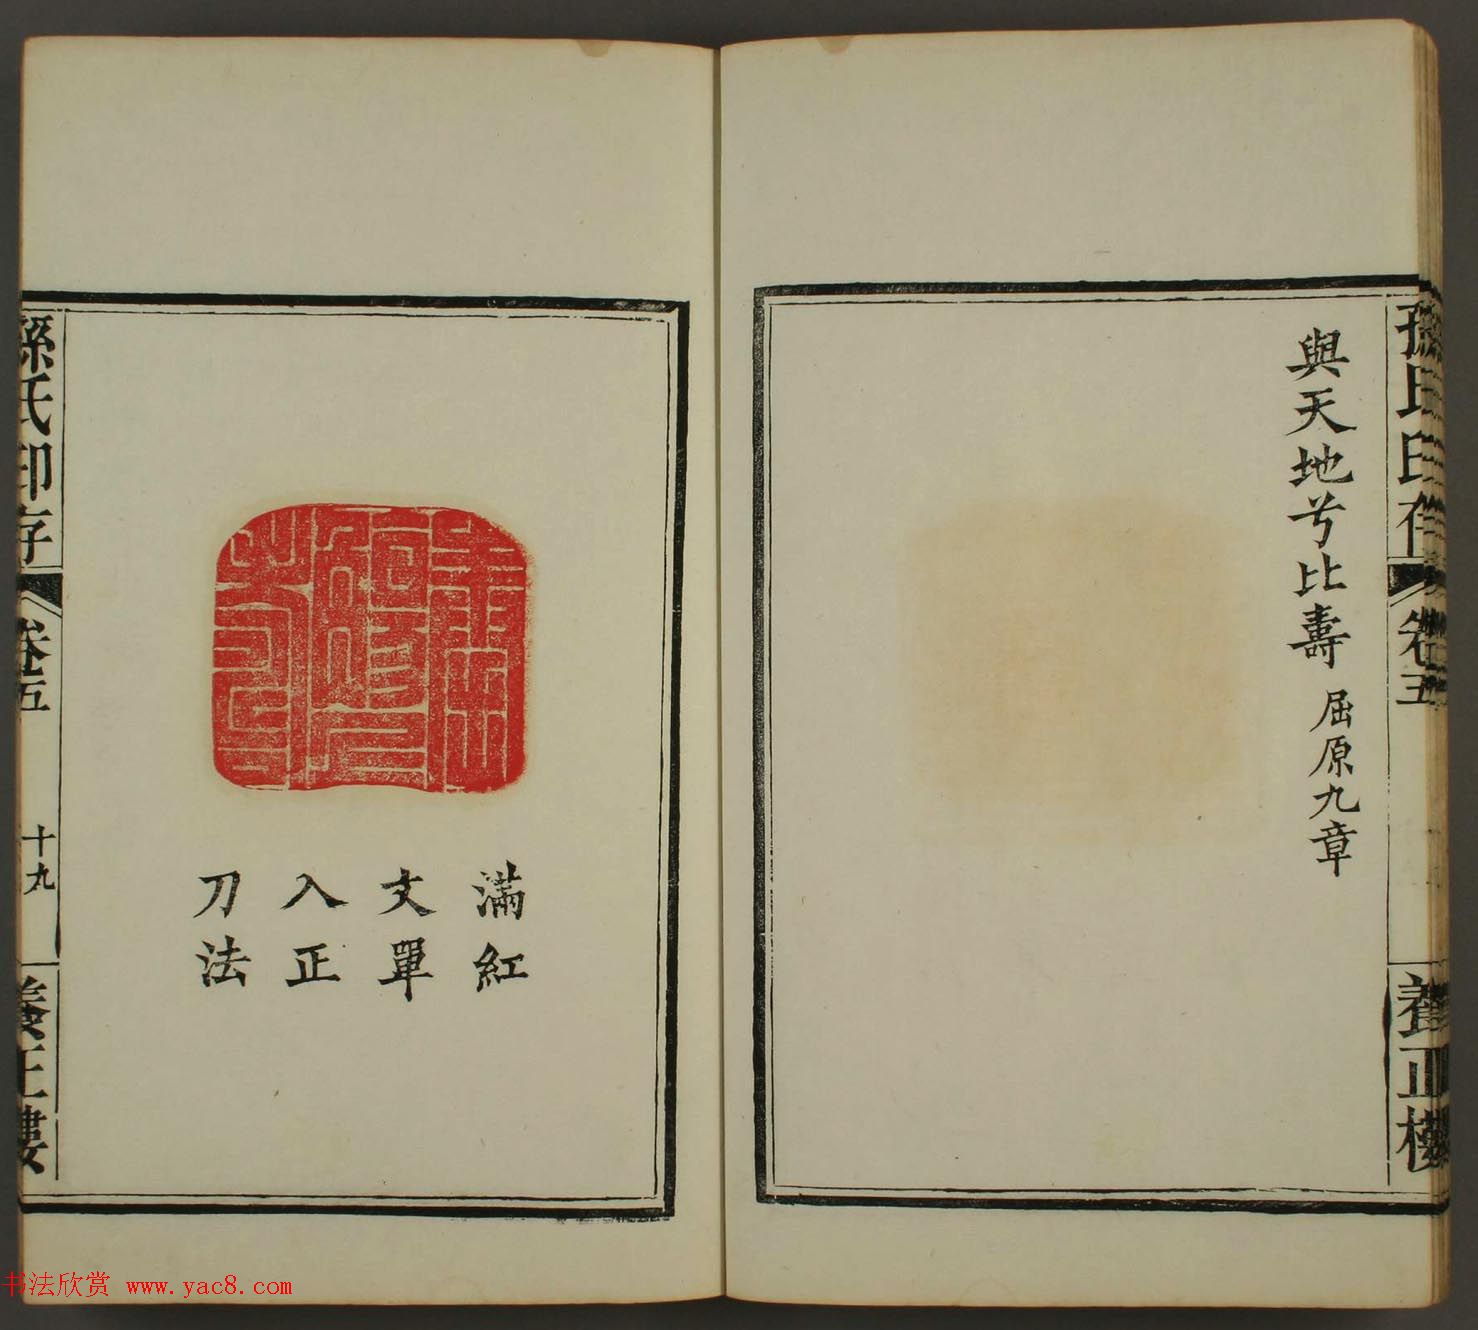 孫氏印存
卷五
養正樓
與天地兮比壽
屈原九章
滿紅
文單
入正
刀法
孫氏印存
卷五
十九
養正樓
书法欣赏 www.yac8.com